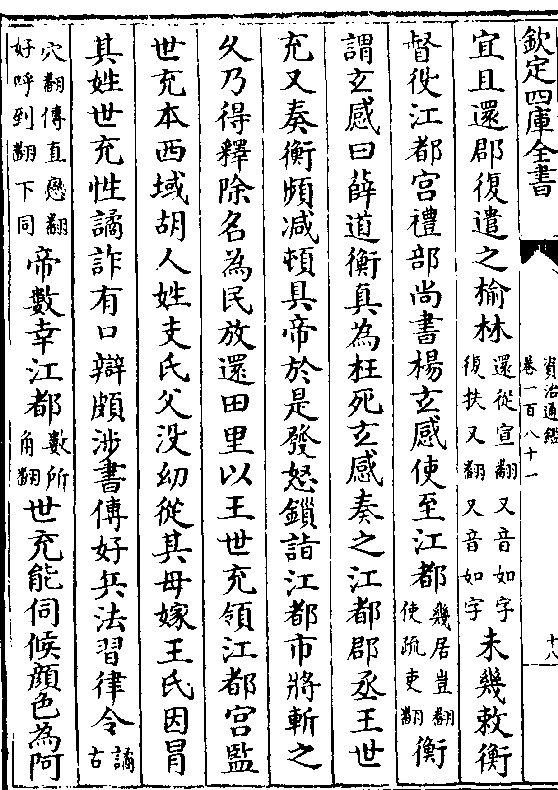 欽定四庫全書
資治通鑑
卷一百八十一
十八
宜且還郡復遣之榆林還從宣翻又音如字復扶又翻又音如字未幾敕衡
督役江都宮禮部尚書楊玄感使至江都幾居豈翻使疏吏翻衡
謂玄感曰薛道衡真為枉死玄感奏之江都郡丞王世
充又奏衡頻減頓具帝於是發怒鎖詣江都市將斬之
久乃得釋除名為民放還田里以王世充領江都宮監
世充本西域胡人姓支氏父没幼從其母嫁王氏因冒
其姓世充性譎詐有口辯頗涉書傳好兵法習律令譎古
穴翻傳直戀翻好呼到翻下同帝數幸江都數所角翻世充能伺候顔色為阿